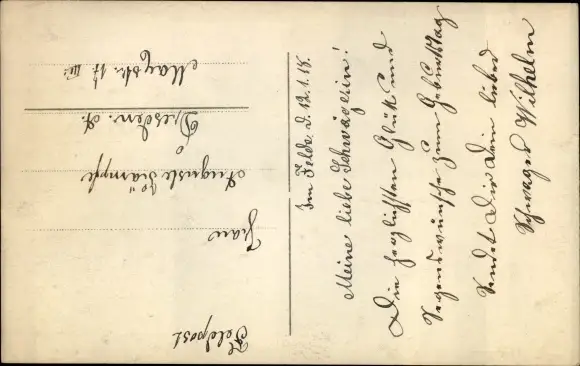 Feldpost
Frau
Auguste Krämpfe
Dresden. A.
Maystr. 17. III.
Im Felde. d. 12.1.15.
Meine liebe Schwägerin!
Die herzlichsten Glück und
Segenswünsche zum Geburtstag
sendet Dir Dein lieber
Schwager Wilhelm